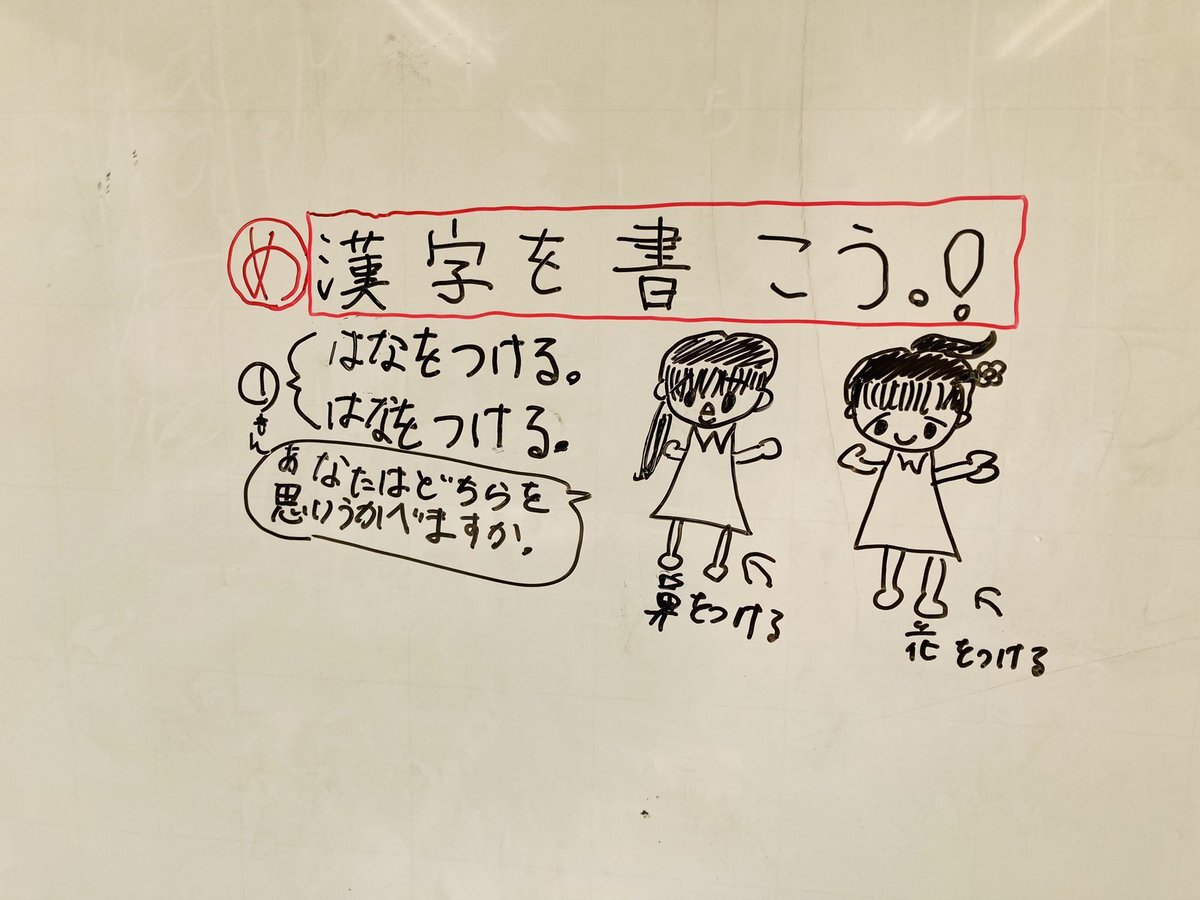 め 漢字を書こう。!
① はなをつける。
はなをつける。
あなたはどちらを
思いうかべますか。
鼻をつける
花をつける